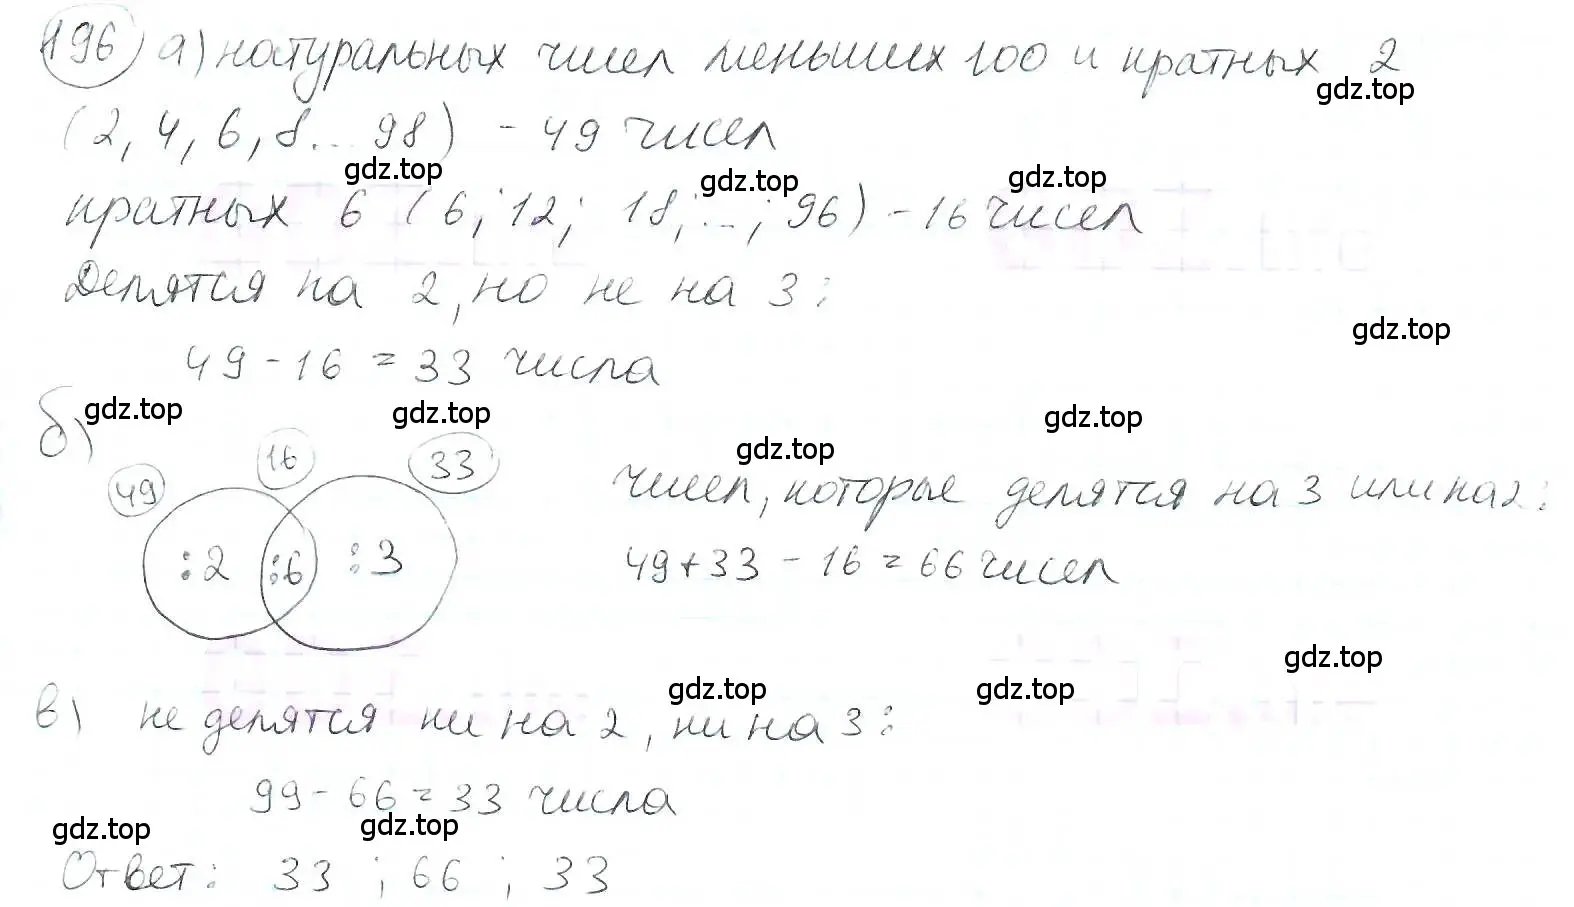 196) а) натуральных чисел меньших 100 и кратных 2
gdz.top
(2, 4, 6, 8... 98) - 49 чисел
gdz.top gdz.top gdz.top
кратных 6 (6; 12; 18; ...; 96) - 16 чисел
Делятся на 2, но не на 3:
gdz.top
49 - 16 = 33 числа
б) gdz.top gdz.top gdz.top
gdz.top
49 16 33
чисел, которые делятся на 3 или на 2:
:2 :6 :3
49 + 33 - 16 = 66 чисел
gdz.top
gdz.top gdz.top
в) не делятся ни на 2, ни на 3:
99 - 66 = 33 числа
gdz.top gdz.top
Ответ: 33 ; 66 ; 33